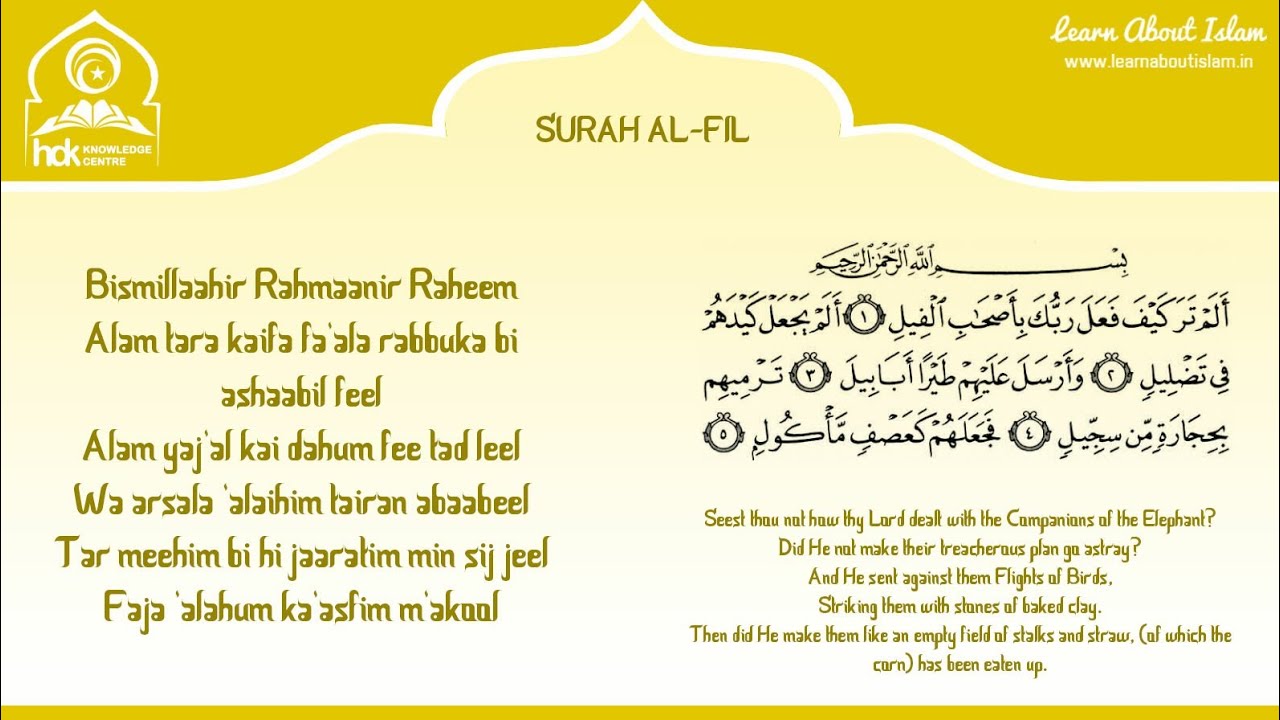 hdk KNOWLEDGE
CENTRE
Learn About Islam
www.learnaboutislam.in
SURAH AL-FIL
Bismillaahir Rahmaanir Raheem
Alam tara kaifa fa'ala rabbuka bi
ashaabil feel
Alam yaj'al kai dahum fee tad leel
Wa arsala 'alaihim tairan abaabeel
Tar meehim bi hi jaaratim min sij jeel
Faja 'alahum ka'asfim m'akool
بِسْمِ اللَّهِ الرَّحْمَٰنِ الرَّحِيمِ
أَلَمْ تَرَ كَيْفَ فَعَلَ رَبُّكَ بِأَصْحَابِ الْفِيلِ ١ أَلَمْ يَجْعَلْ كَيْدَهُمْ
فِي تَضْلِيلٍ ٢ وَأَرْسَلَ عَلَيْهِمْ طَيْرًا أَبَابِيلَ ٣ تَرْمِيهِم
بِحِجَارَةٍ مِّن سِجِّيلٍ ٤ فَجَعَلَهُمْ كَعَصْفٍ مَّأْكُولٍ ٥
Seest thou not how thy Lord dealt with the Companions of the Elephant?
Did He not make their treacherous plan go astray?
And He sent against them Flights of Birds,
Striking them with stones of baked clay.
Then did He make them like an empty field of stalks and straw, (of which the
corn) has been eaten up.